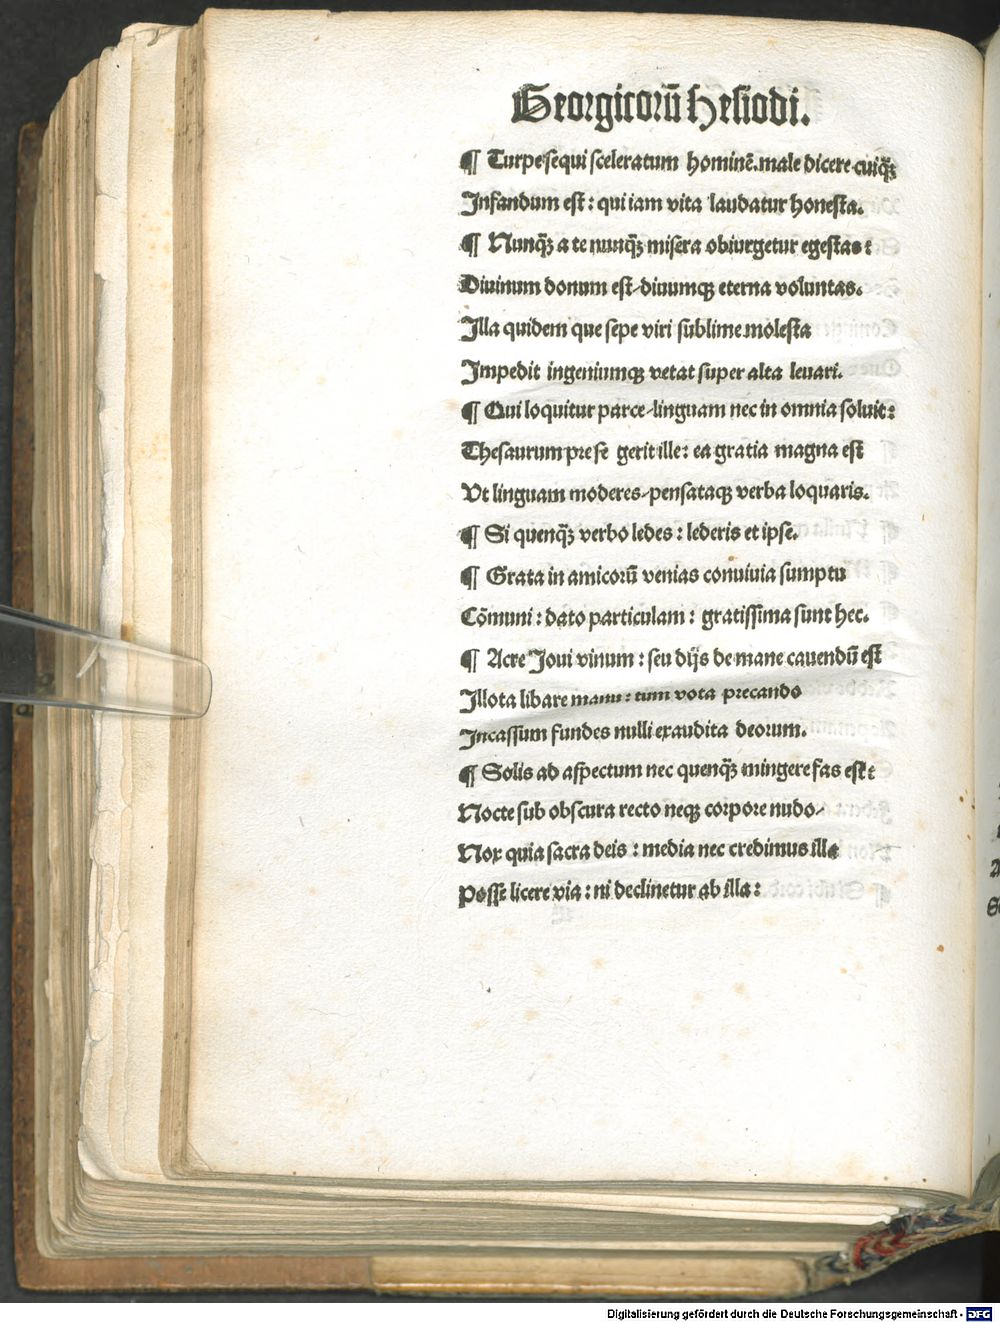 Georgicorū Hesiodi.
¶ Turpe sequi sceleratum hominē. male dicere cuiqꝫ
Infandum est: qui iam vita laudatur honesta.
¶ Nunqꝫ̄ a te nunqꝫ̄ misera obiurgetur egestas:
Diuinum donum est/diuumqꝫ eterna voluntas.
Illa quidem que sepe viri sublime molesta
Impedit ingeniumqꝫ vetat super alta leuari.
¶ Qui loquitur parce/linguam nec in omnia soluit:
Thesaurum pre se gerit ille: ea gratia magna est
Vt linguam moderes/pensataqꝫ verba loquaris.
¶ Si quenqꝫ̄ verbo ledes: lederis et ipse.
¶ Grata in amicorū venias conuiuia sumptu
Cōmuni: dato particulam: gratissima sunt hec.
¶ Acre Joui vinum: seu dijs de mane cauendū est
Illota libare manu: tum vota precando
Incassum fundes nulli exaudita deorum.
¶ Solis ad aspectum nec quenqꝫ̄ mingere fas est:
Nocte sub obscura recto neqꝫ corpore nudo/
Nox quia sacra deis: media nec credimus illa
Posse licere via: ni declinetur ab illa:
Digitalisierung gefördert durch die Deutsche Forschungsgemeinschaft - DFG